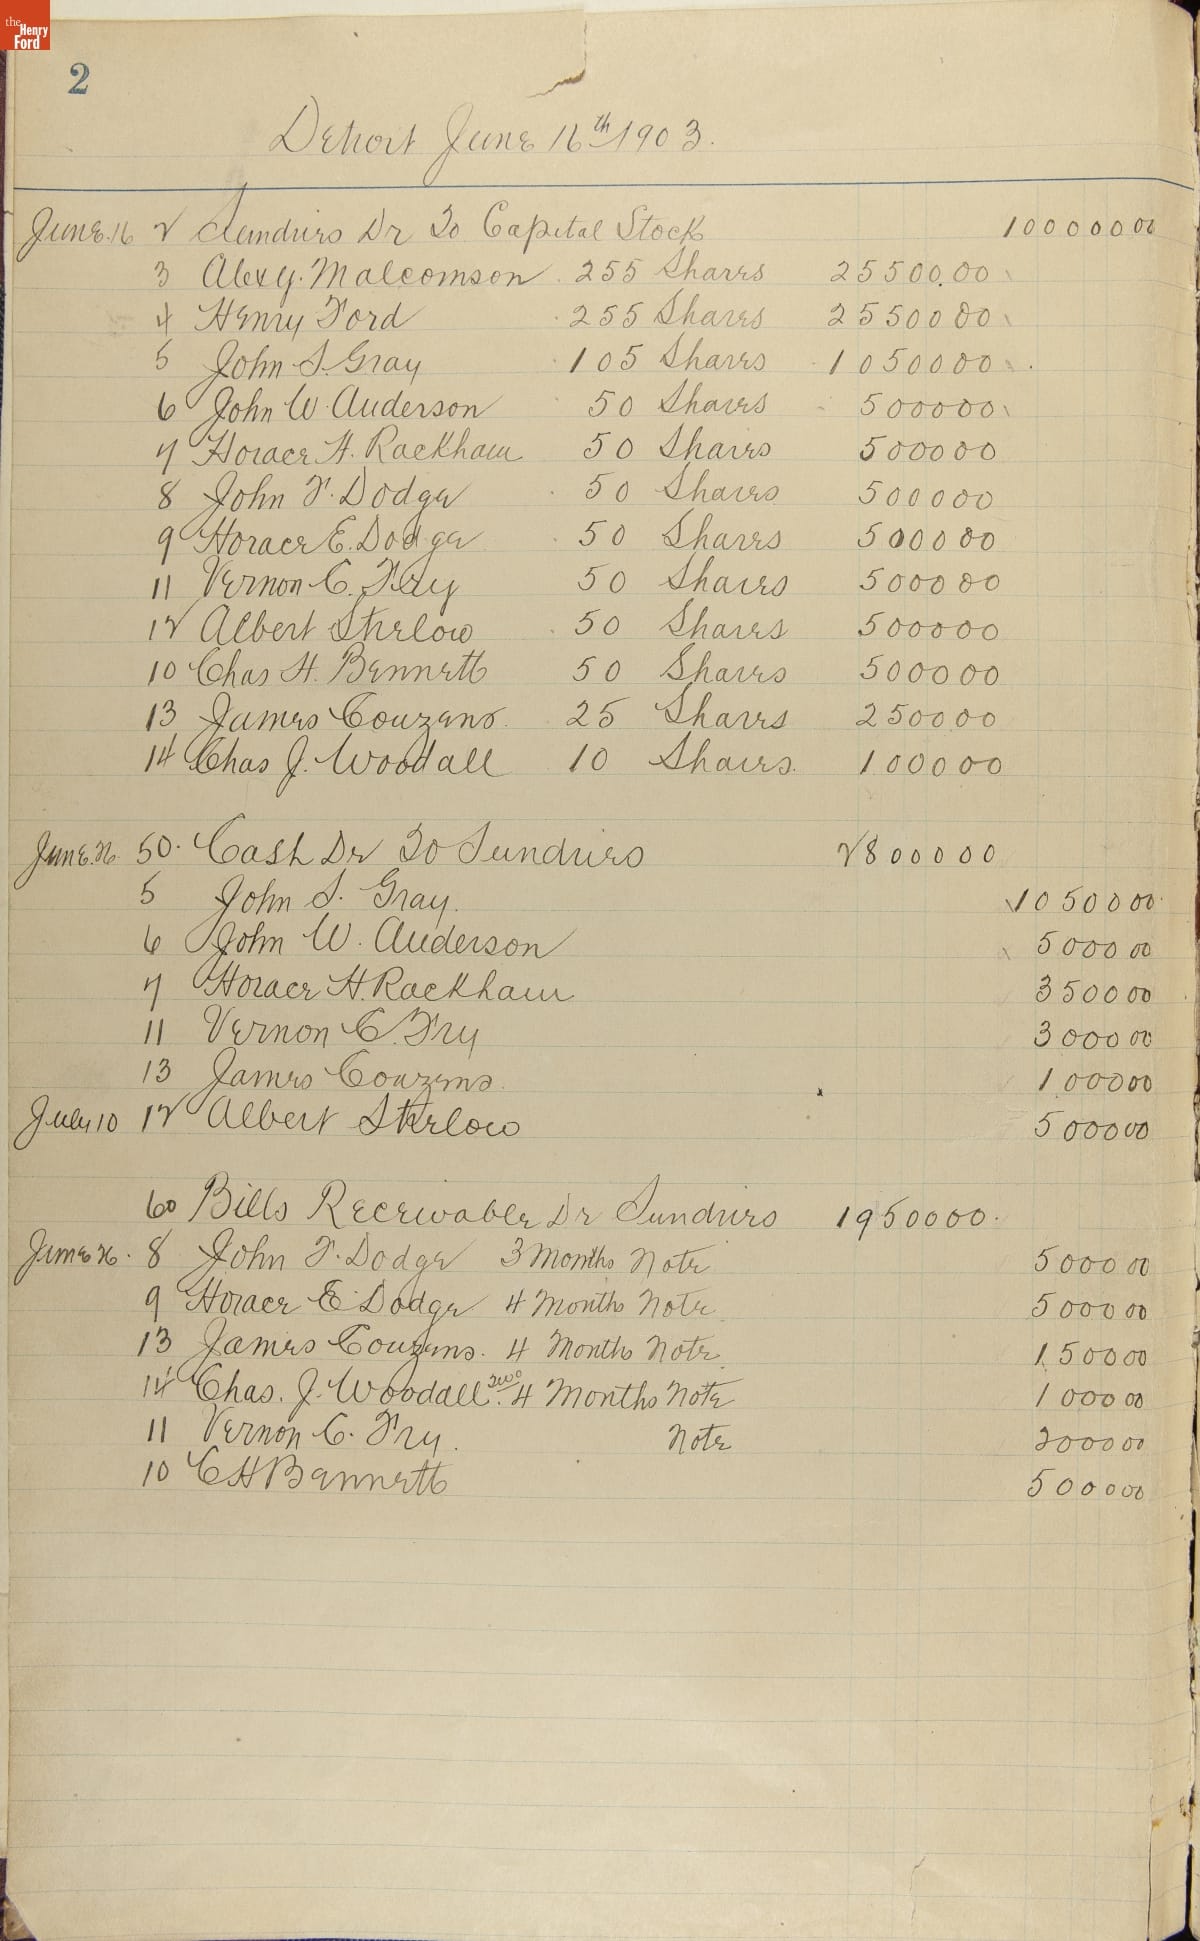 the
Henry
Ford
2
Detroit June 16th 1903.
June 16 2 Sundries Dr To Capital Stock 100000 00
3 Alex y. Malcomson 255 Shares 25500.00
4 Henry Ford 255 Shares 25500 00
5 John S. Gray 105 Shares 10500 00
6 John W. Anderson 50 Shares 5000 00
7 Horace H. Rackham 50 Shares 5000 00
8 John F. Dodge 50 Shares 5000 00
9 Horace E. Dodge 50 Shares 5000 00
11 Vernon C. Fry 50 Shares 5000 00
12 Albert Strelow 50 Shares 5000 00
10 Chas H. Bennett 50 Shares 5000 00
13 James Couzens. 25 Shares 2500 00
14 Chas J. Woodall 10 Shares. 1000 00
June. 26. 50. Cash Dr To Sundries 28000 00
5 John S. Gray. 10500 00
6 John W. Anderson 5000 00
7 Horace H. Rackham 3500 00
11 Vernon C. Fry 3000 00
13 James Couzens. 1000 00
July 10 12 Albert Strelow 5000 00
60 Bills Receivable Dr Sundries 19500 00.
June 26. 8 John F. Dodge 3 Months Note 5000 00
9 Horace E. Dodge 4 Months Note 5000 00
13 James Couzens. 4 Months Note 1500 00
14 Chas. J. Woodall. two 4 Months Note 1000 00
11 Vernon C. Fry. Note 2000 00
10 C H Bennett 5000 00